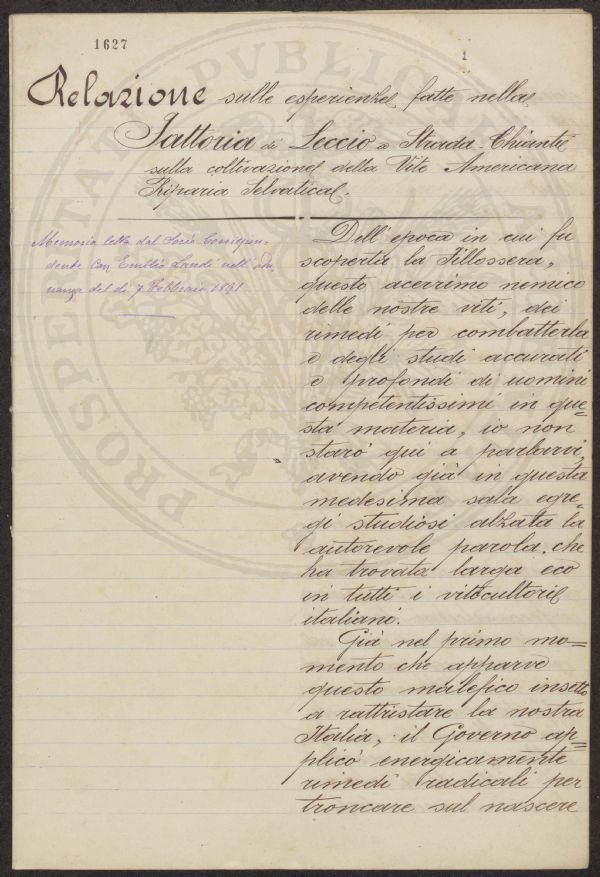 1627
1
Relazione sulle esperienze fatte nella
Fattoria di Leccio a Strada-Chianti
sulla coltivazione della Vite Americana
Riparia Selvatica.
Memoria letta dal Socio Corrispon-
dente Cav Emilio Landi nell'adu-
nanza del dì 7 Febbraio 1891
Dell'epoca in cui fu
scoperta la Fillossera,
questo acerrimo nemico
delle nostre viti, dei
rimedi per combatterla
e degli studi accurati
e profondi di uomini
competentissimi in que=
sta materia, io non
starò qui a parlarvi,
avendo già in questa
medesima sala egre=
gi studiosi alzata la
autorevole parola, che
ha trovata larga eco
in tutti i viticultori
italiani.
Già nel primo mo=
mento che apparve
questo malefico insetto
a rattristare la nostra
Italia, il Governo ap=
plicò energicamente
rimedi radicali per
troncare sul nascere
PROSPERITATI PVBLICAE